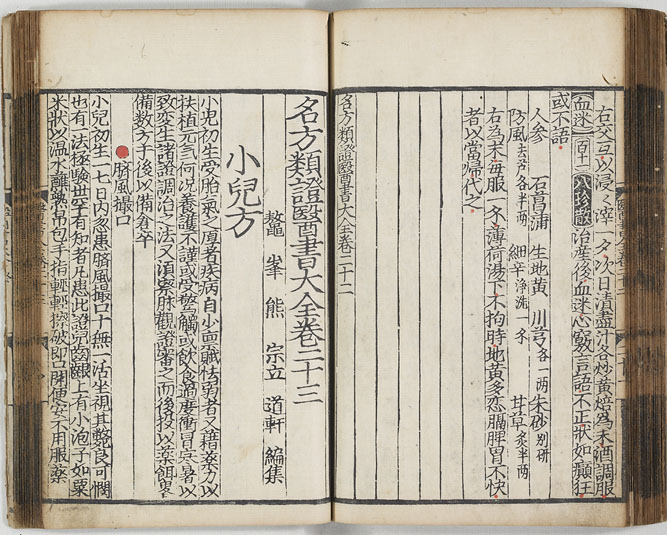 右交互以浸々滓一夕次日漬盡汁各炒黄焙為末酒調服
血迷 百十一 八珍散 治産後血迷心竅言語不正狀如癲狂
或不語
人參 石菖蒲 生地黄 川芎各一兩 朱砂别研
防風去芦各半兩 細辛净洗一錢 甘草炙半兩
右為末毎服一錢薄荷湯下不拘時地黄多恋膈脾胃不快
者以當歸代之
名方類證醫書大全卷二十二
名方類證醫書大全卷二十三
鼇峯熊宗立道軒編集
小兒方
小兒初生受胎氣之厚者疾病自少禀賦怯弱者又藉藥力以
扶植元氣何况養護不謹或受驚觸或飲食過度衝冒寒暑以
致变生諸證調治之法又湏察脉觀證審之而後投以藥餌畧
備数方于後以備倉卒
臍風撮口
小兒初生一七日内忽患臍風撮口十無一活坐視其斃良可憫
也有一法極驗世罕有知者凡患此證児齒齦上有小泡子如粟
米狀以温水蘸熟帛包手指輕輕擦破即口開便安不用服藥